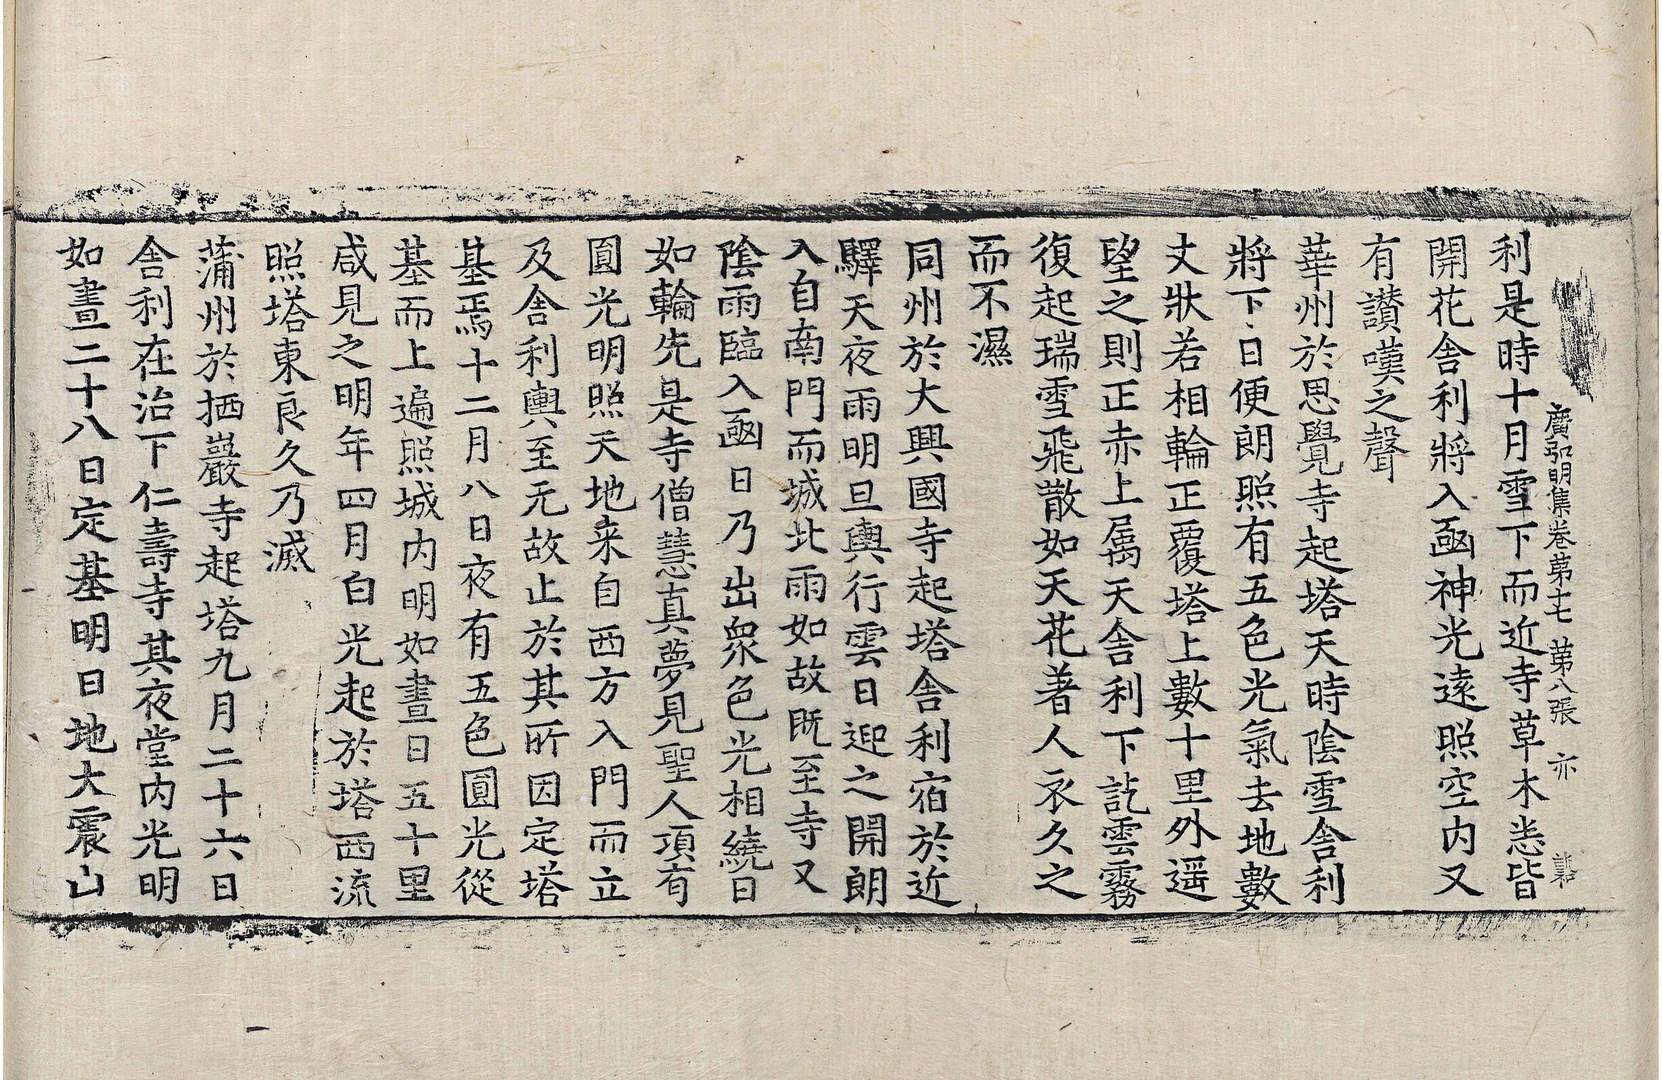 廣弘明集卷第十七 第八張 亦
利是時十月雪下而近寺草木悉皆
開花舍利將入凾神光遠照空内又
有讃嘆之聲
華州於思覺寺起塔天時陰雪舍利
將下日便朗照有五色光氣去地數
丈狀若相輪正覆塔上數十里外遥
望之則正赤上屬天舍利下訖雲霧
復起瑞雪飛散如天花著人衣久之
而不濕
同州於大興國寺起塔舍利宿於近
驛天夜雨明旦輿行雲日迎之開朗
入自南門而城北雨如故既至寺又
陰雨臨入凾日乃出衆色光相繞日
如輪先是寺僧慧真夢見聖人項有
圓光明照天地来自西方入門而立
及舍利輿至无故止於其所因定塔
基焉十二月八日夜有五色圓光從
基而上遍照城内明如晝日五十里
咸見之明年四月白光起於塔西流
照塔東良久乃滅
蒲州於栖巖寺起塔九月二十六日
舍利在治下仁壽寺其夜堂内光明
如晝二十八日定基明日地大震山